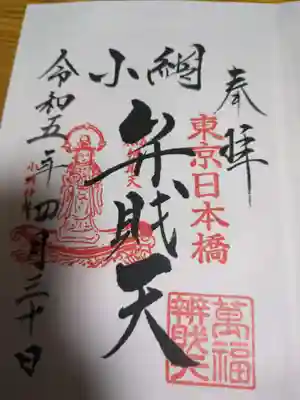 奉拝
東京日本橋
萬福
辨財天
小網
弁財天
令和五年四月三十日